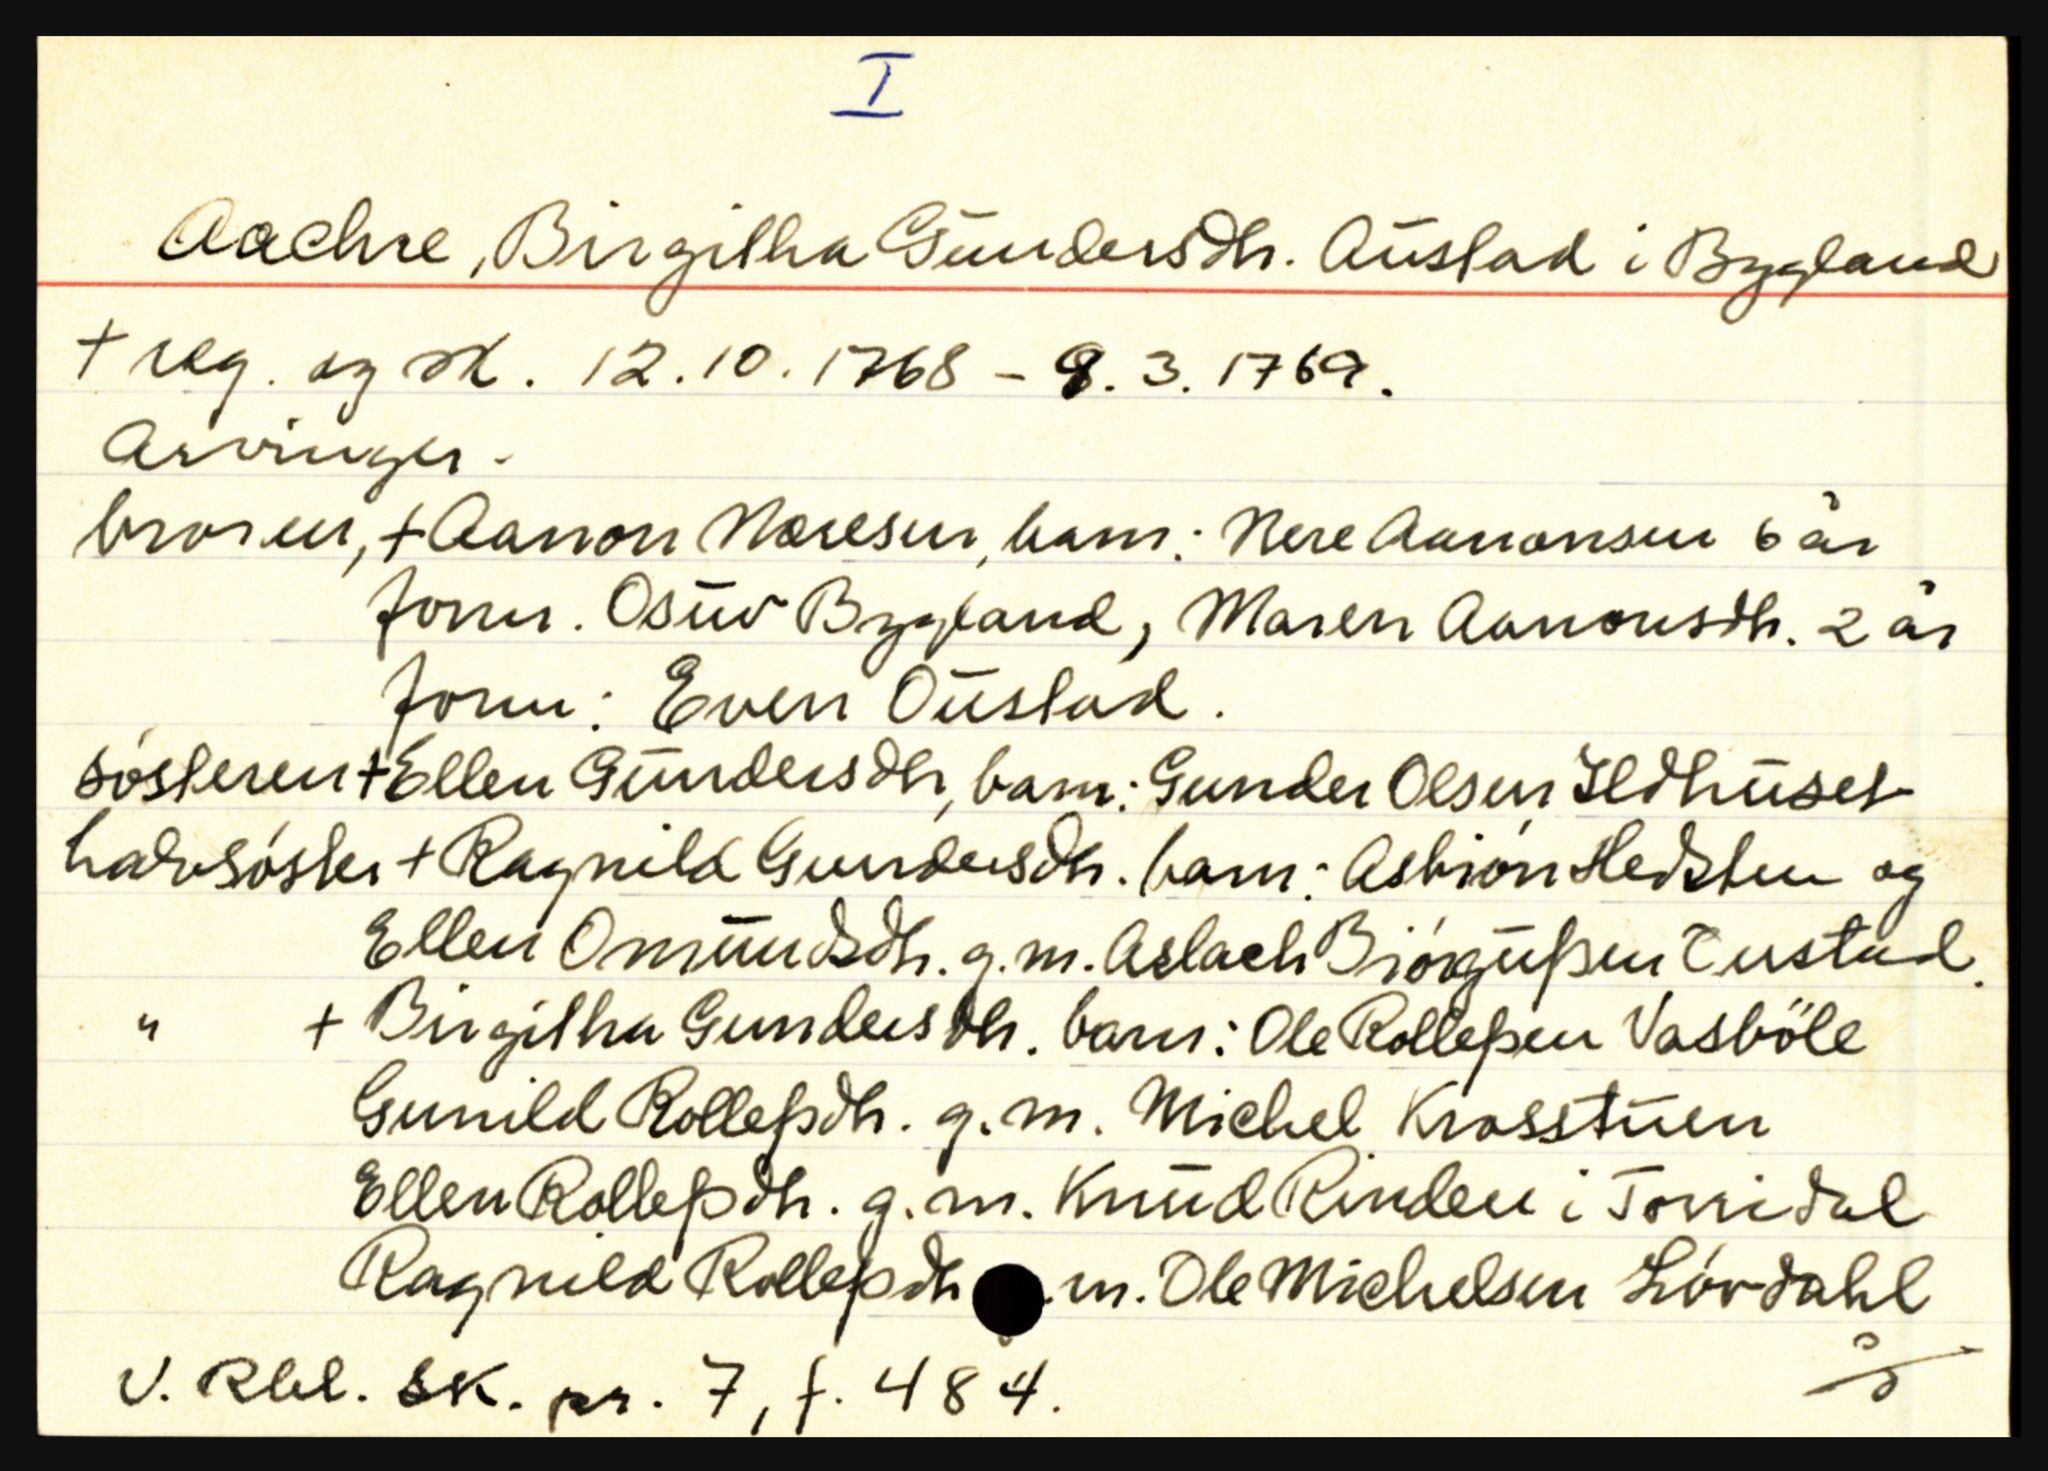 I
Aachre, Birgitha Gundersdtr. Austad i Bygland
+ reg. og sk. 12.10.1768 - 8.3.1769.
Arvinger.
broren, + Aanon Neresen, barn: Nere Aanonsen 6 år
form. Osuv Bygland, Maren Aanonsdtr. 2 år
form: Even Oustad.
søsteren + Ellen Gundersdtr, barn: Gunder Olsen Ildhuset
halvsøster + Ragnild Gundersdtr. barn: Asbiøn Hedsten og
Ellen Omundsdtr. g.m. Aslach Biørgußen Tustad.
" + Birgitha Gundersdtr. barn: Ole Rolleßen Vasbøle
Gunild Rolleßdtr. g.m. Michel Krosstuen
Ellen Rolleßdtr. g.m. Knud Rinden i Torridal
Ragnild Rolleßdtr .m. Ole Michelsen Løvdahl
V. Rbl. sk. pr. 7, f. 484.